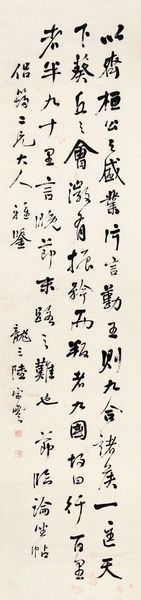 以齊桓公之盛業片言勤王則九合諸矦一匡天
下葵丘之會微有振矜而叛者九國故曰行百里
者半九十里言晚節末路之難也 節臨論坐帖
侶篛二兄大人雅鑒
龍之陸